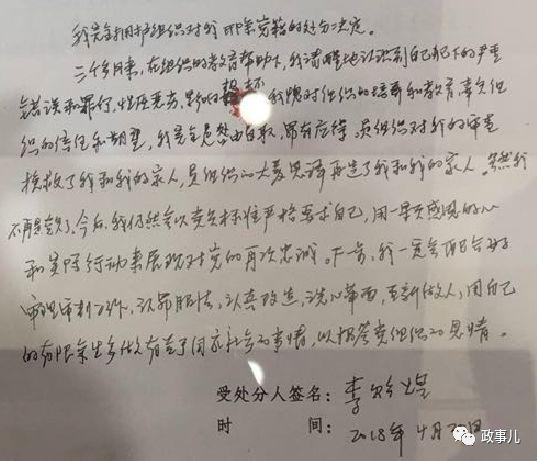 我完全拥护组织对我开除党籍的处分决定。
三个多月来，在组织的教育帮助下，我清醒地认识到自己犯下的严重
错误和罪行，性质恶劣，影响极坏 我愧对组织的培养和教育，辜负组
织的信任和期望，我完全是咎由自取，罪有应得。是组织对我的审查
挽救了我和我的家人，是组织的大爱 再造了我和我的家人。虽然我
不再是党员了，今后，我仍然会以党员标准严格要求自己，用一颗感恩的心
和实际行动来展现对党的再次忠诚。下一步，我一定会配合好
审理审判工作，认罪服法，认真改造，洗心革面，重新做人，用自己
的有限余生多做有益于国家社会的事情，以报答党组织的恩情。
受处分人签名：李贻煌
时 间：2018年4月20日
政事儿